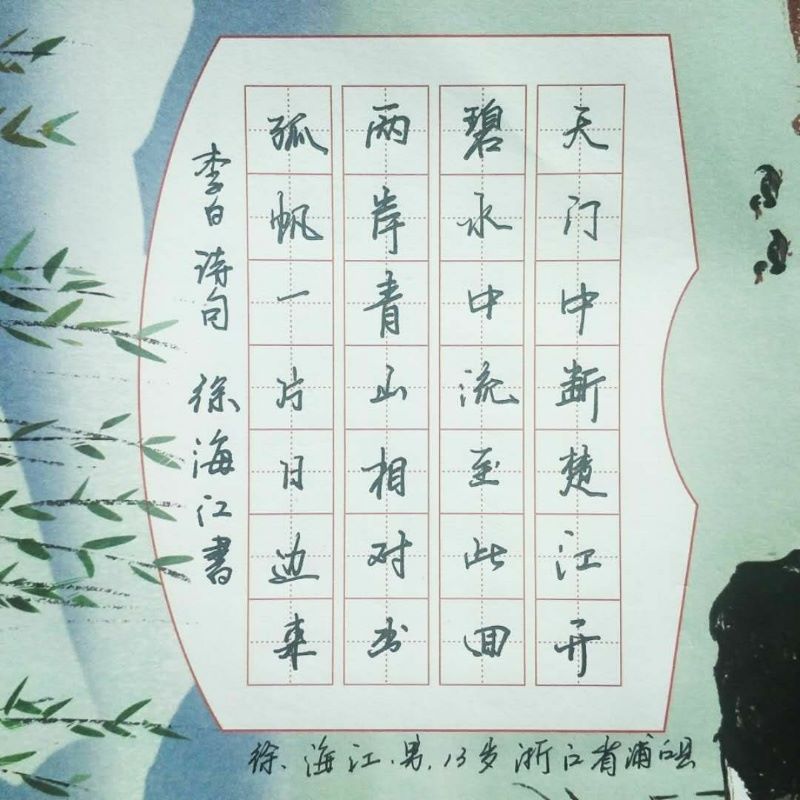 天门中断楚江开
碧水中流至此回
两岸青山相对出
孤帆一片日边来
李白诗句 徐海江書
徐海江.男.13岁 浙江省浦江县